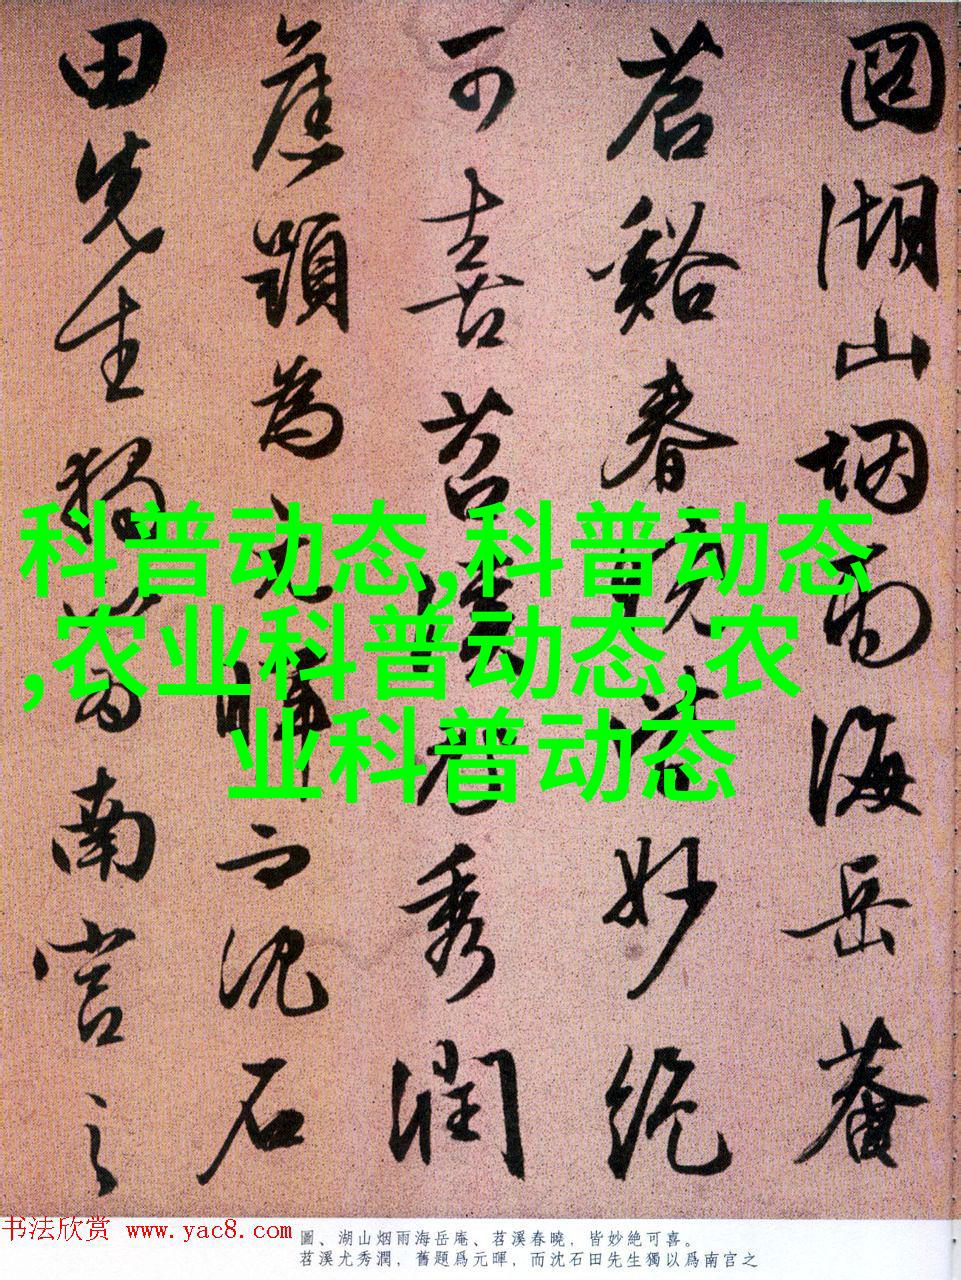 圖湖山烟雨海岳菴
苕谿春曉皆妙絶
可喜苕溪尤秀潤
舊題為元暉而沈石
田先生獨以為南宫之
科普动态,科普动态
,农业科普动态,农
业科普动态
书法欣赏 www.yac8.com
圖、湖山烟雨海岳庵、苕溪春曉，皆妙絶可喜。
苕溪尤秀潤，舊題爲元暉，而沈石田先生獨以爲南宫之